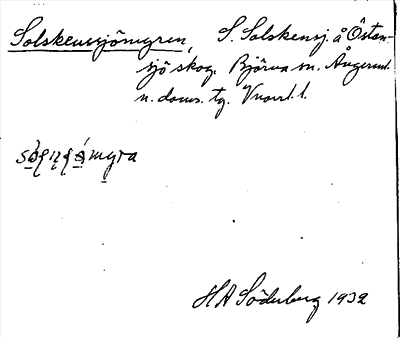 Solskensjömyren, S. Solskensj. å Östan-
sjö skog. Björna sn. Ångerml.
n. doms. tg. Vnorrl. l.
H A Söderberg 1932